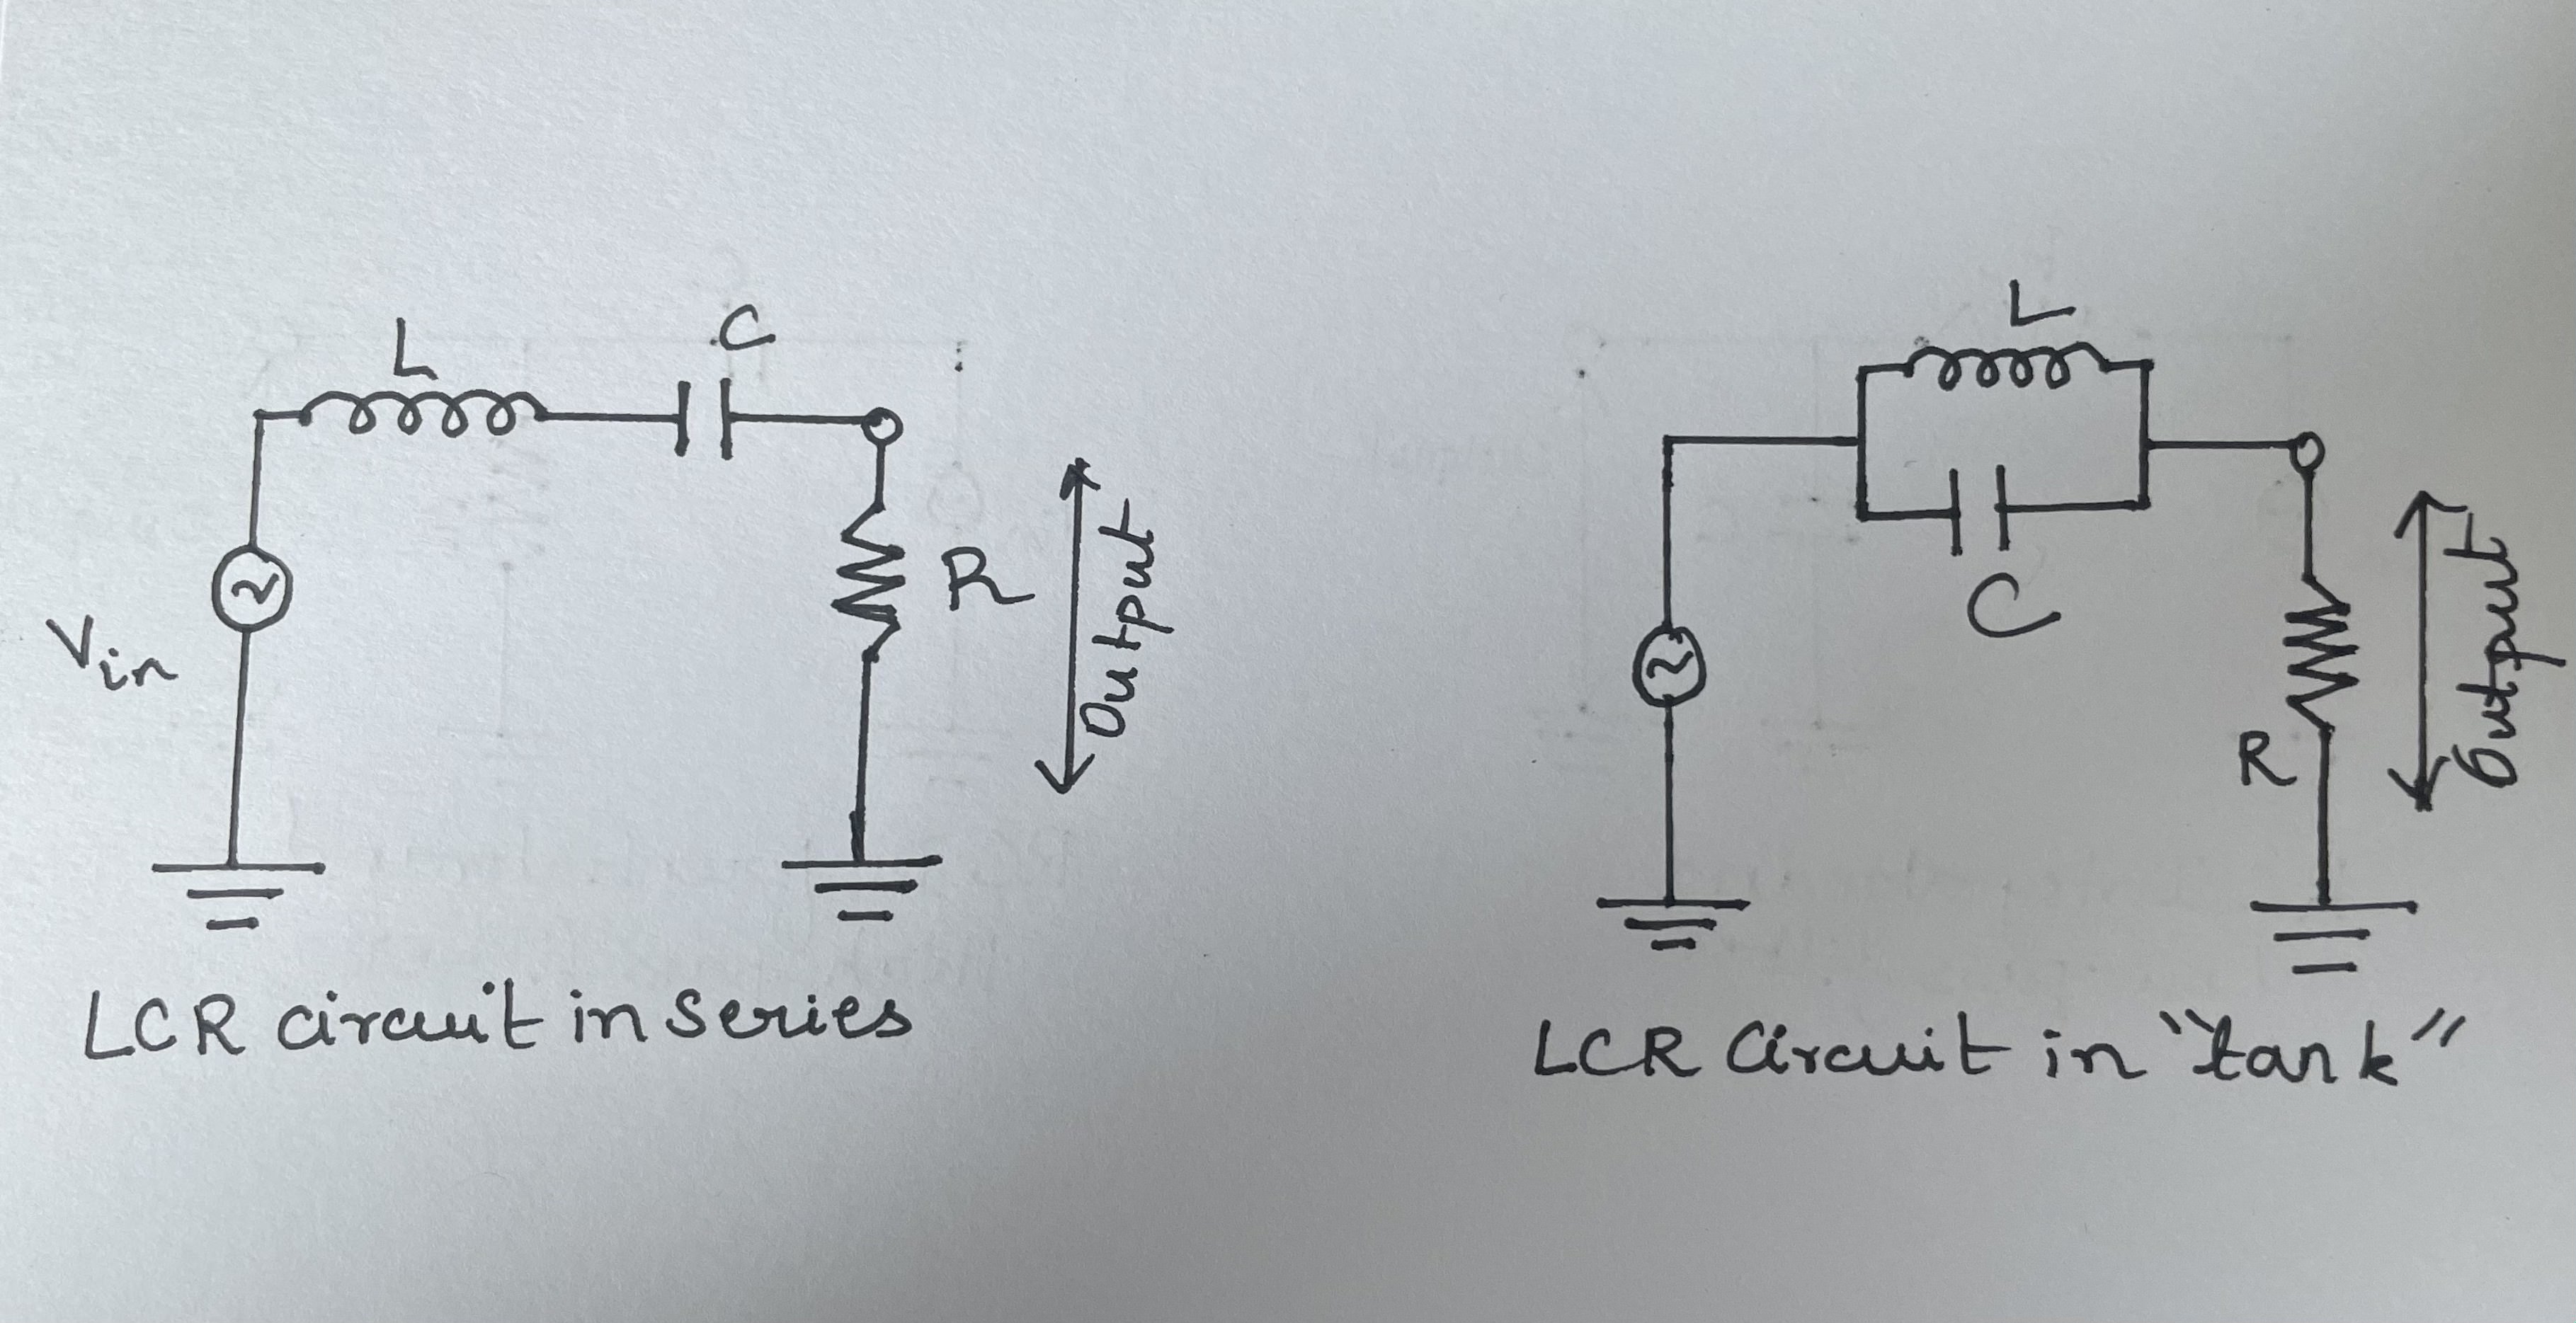 L
C
Vin
R
Output
LCR circuit in series
L
C
R
Output
LCR Circuit in "tank"